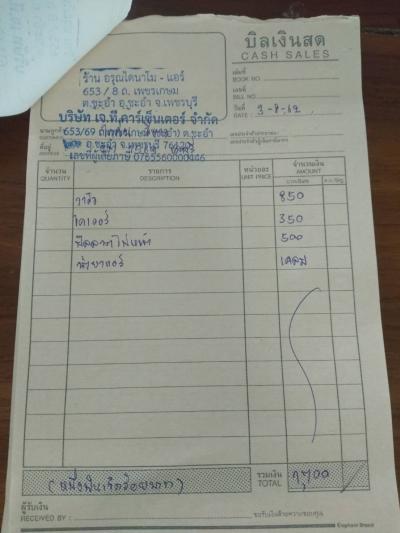 บิลเงินสด
CASH SALES
ร้าน อรุณไดนาโม - แอร์
653 / 8 ถ. เพชรเกษม
ต.ชะอำ อ.ชะอำ จ.เพชรบุรี
เล่มที่
BOOK NO.
เลขที่
BILL NO.
วันที่ 3-8-62
DATE
บริษัท เจ.ที.คาร์เซ็นเตอร์ จำกัด
นามลูกค้า 653/69 ต.ชะอำ
ที่อยู่ อ.ชะอำ จ.เพชรบุรี 76120
ADDRESS
เลขที่ผู้เสียภาษี
จำนวน
QUANTITY
รายการ
DESCRIPTION
หน่วยละ
UNIT PRICE
จำนวนเงิน
AMOUNT
850
ไดเออร์ 350
500
น้ำยาแอร์ เคลม
(หนึ่งพันเจ็ดร้อยบาท)
รวมเงิน
TOTAL
1,700
ผู้รับเงิน
RECEIVED BY :
ขอรับเงินด้วยความขอบคุณ
Elephant Brand